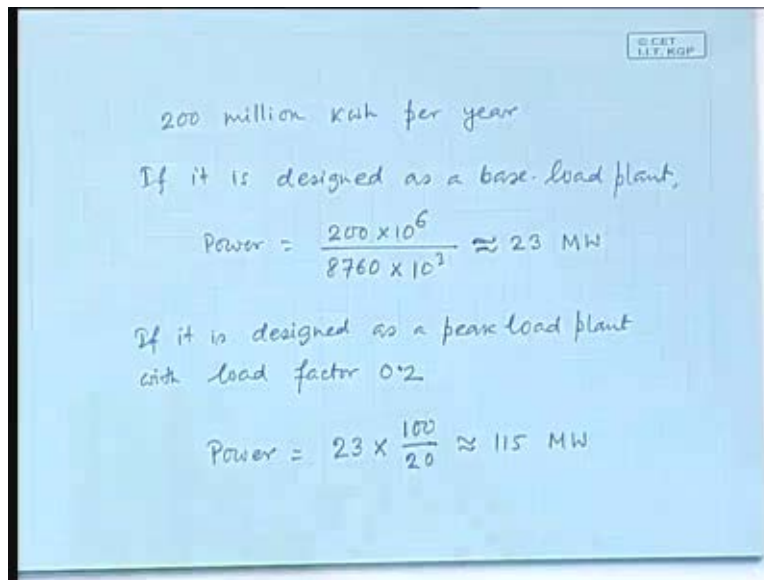 © CET
I.I.T. KGP
200 million kwh per year
If it is designed as a base-load plant,
Power = 200 × 10⁶ / 8760 × 10³ ≈ 23 MW
If it is designed as a peak load plant
with load factor 0.2
Power = 23 × 100/20 ≈ 115 MW